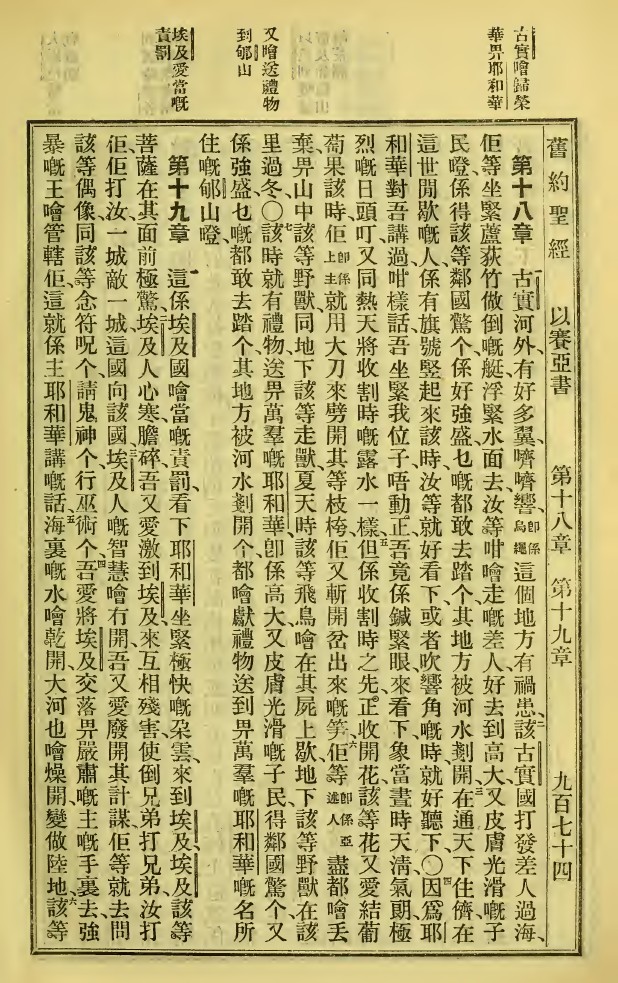 舊約聖經 以賽亞書 第十八章 第十九章 九百七十四
古實噲歸榮
華畀耶和華
又噲送禮物
到郇山
埃及愛當嘅
責罰
第十八章 一古實河外、有好多翼、嚌嚌響、卽係烏蠅這個地方有禍患、二該古實國打發差人過海、
佢等坐緊蘆荻竹做倒嘅艇浮緊水面去、汝等咁噲走嘅差人、好去到高大又皮膚光滑嘅子
民𠵇、係得該等鄰國驚个、係好強盛乜嘅都敢去踏个、其地方被河水剗開、三在通天下住儕、在
這世間歇嘅人、係有旗號竪起來該時、汝等就好看下、或者吹響角嘅時、就好聽下、〇四因爲耶
和華對吾講過咁樣話、吾坐緊我位子唔動正、吾竟係鍼緊眼來看下、象當晝時天淸氣朗極
烈嘅日頭叮、又同熱天將收割時嘅露水一樣、五但係收割時之先、正收開花、該等花又愛結葡
萄果該時、佢卽係上主就用大刀來劈開其等枝桍、佢又斬開岔出來嘅笋、六佢等卽係亞述人盡都噲丟
棄畀山中該等野獸、同地下該等走獸、夏天時該等飛鳥噲在其屍上歇、地下該等野獸在該
里過冬、〇七該時就有禮物、送畀萬羣嘅耶和華、卽係高大又皮膚光滑嘅子民、得鄰國驚个、又
係強盛乜嘅都敢去踏个、其地方被河水剗開个、都噲獻禮物送到畀萬羣嘅耶和華嘅名所
住嘅郇山𠵇、
第十九章 一這係埃及國噲當嘅責罰、看下耶和華坐緊極快嘅朶雲、來到埃及、埃及該等
菩薩在其面前極驚、埃及人心寒膽碎、二吾又愛激到埃及、來互相殘害、使倒兄弟打兄弟、汝打
佢、佢打汝、一城敵一城、這國向該國、三埃及人嘅智慧噲冇開、吾又愛廢開其計謀、佢等就去問
該等偶像、同該等念符呪个、請鬼神个、行巫術个、四吾愛將埃及交落畀嚴肅嘅主嘅手裏去、強
暴嘅王噲管轄佢、這就係主耶和華講嘅話、五海裏嘅水噲乾開、大河也噲燥開、變做陸地、六該等